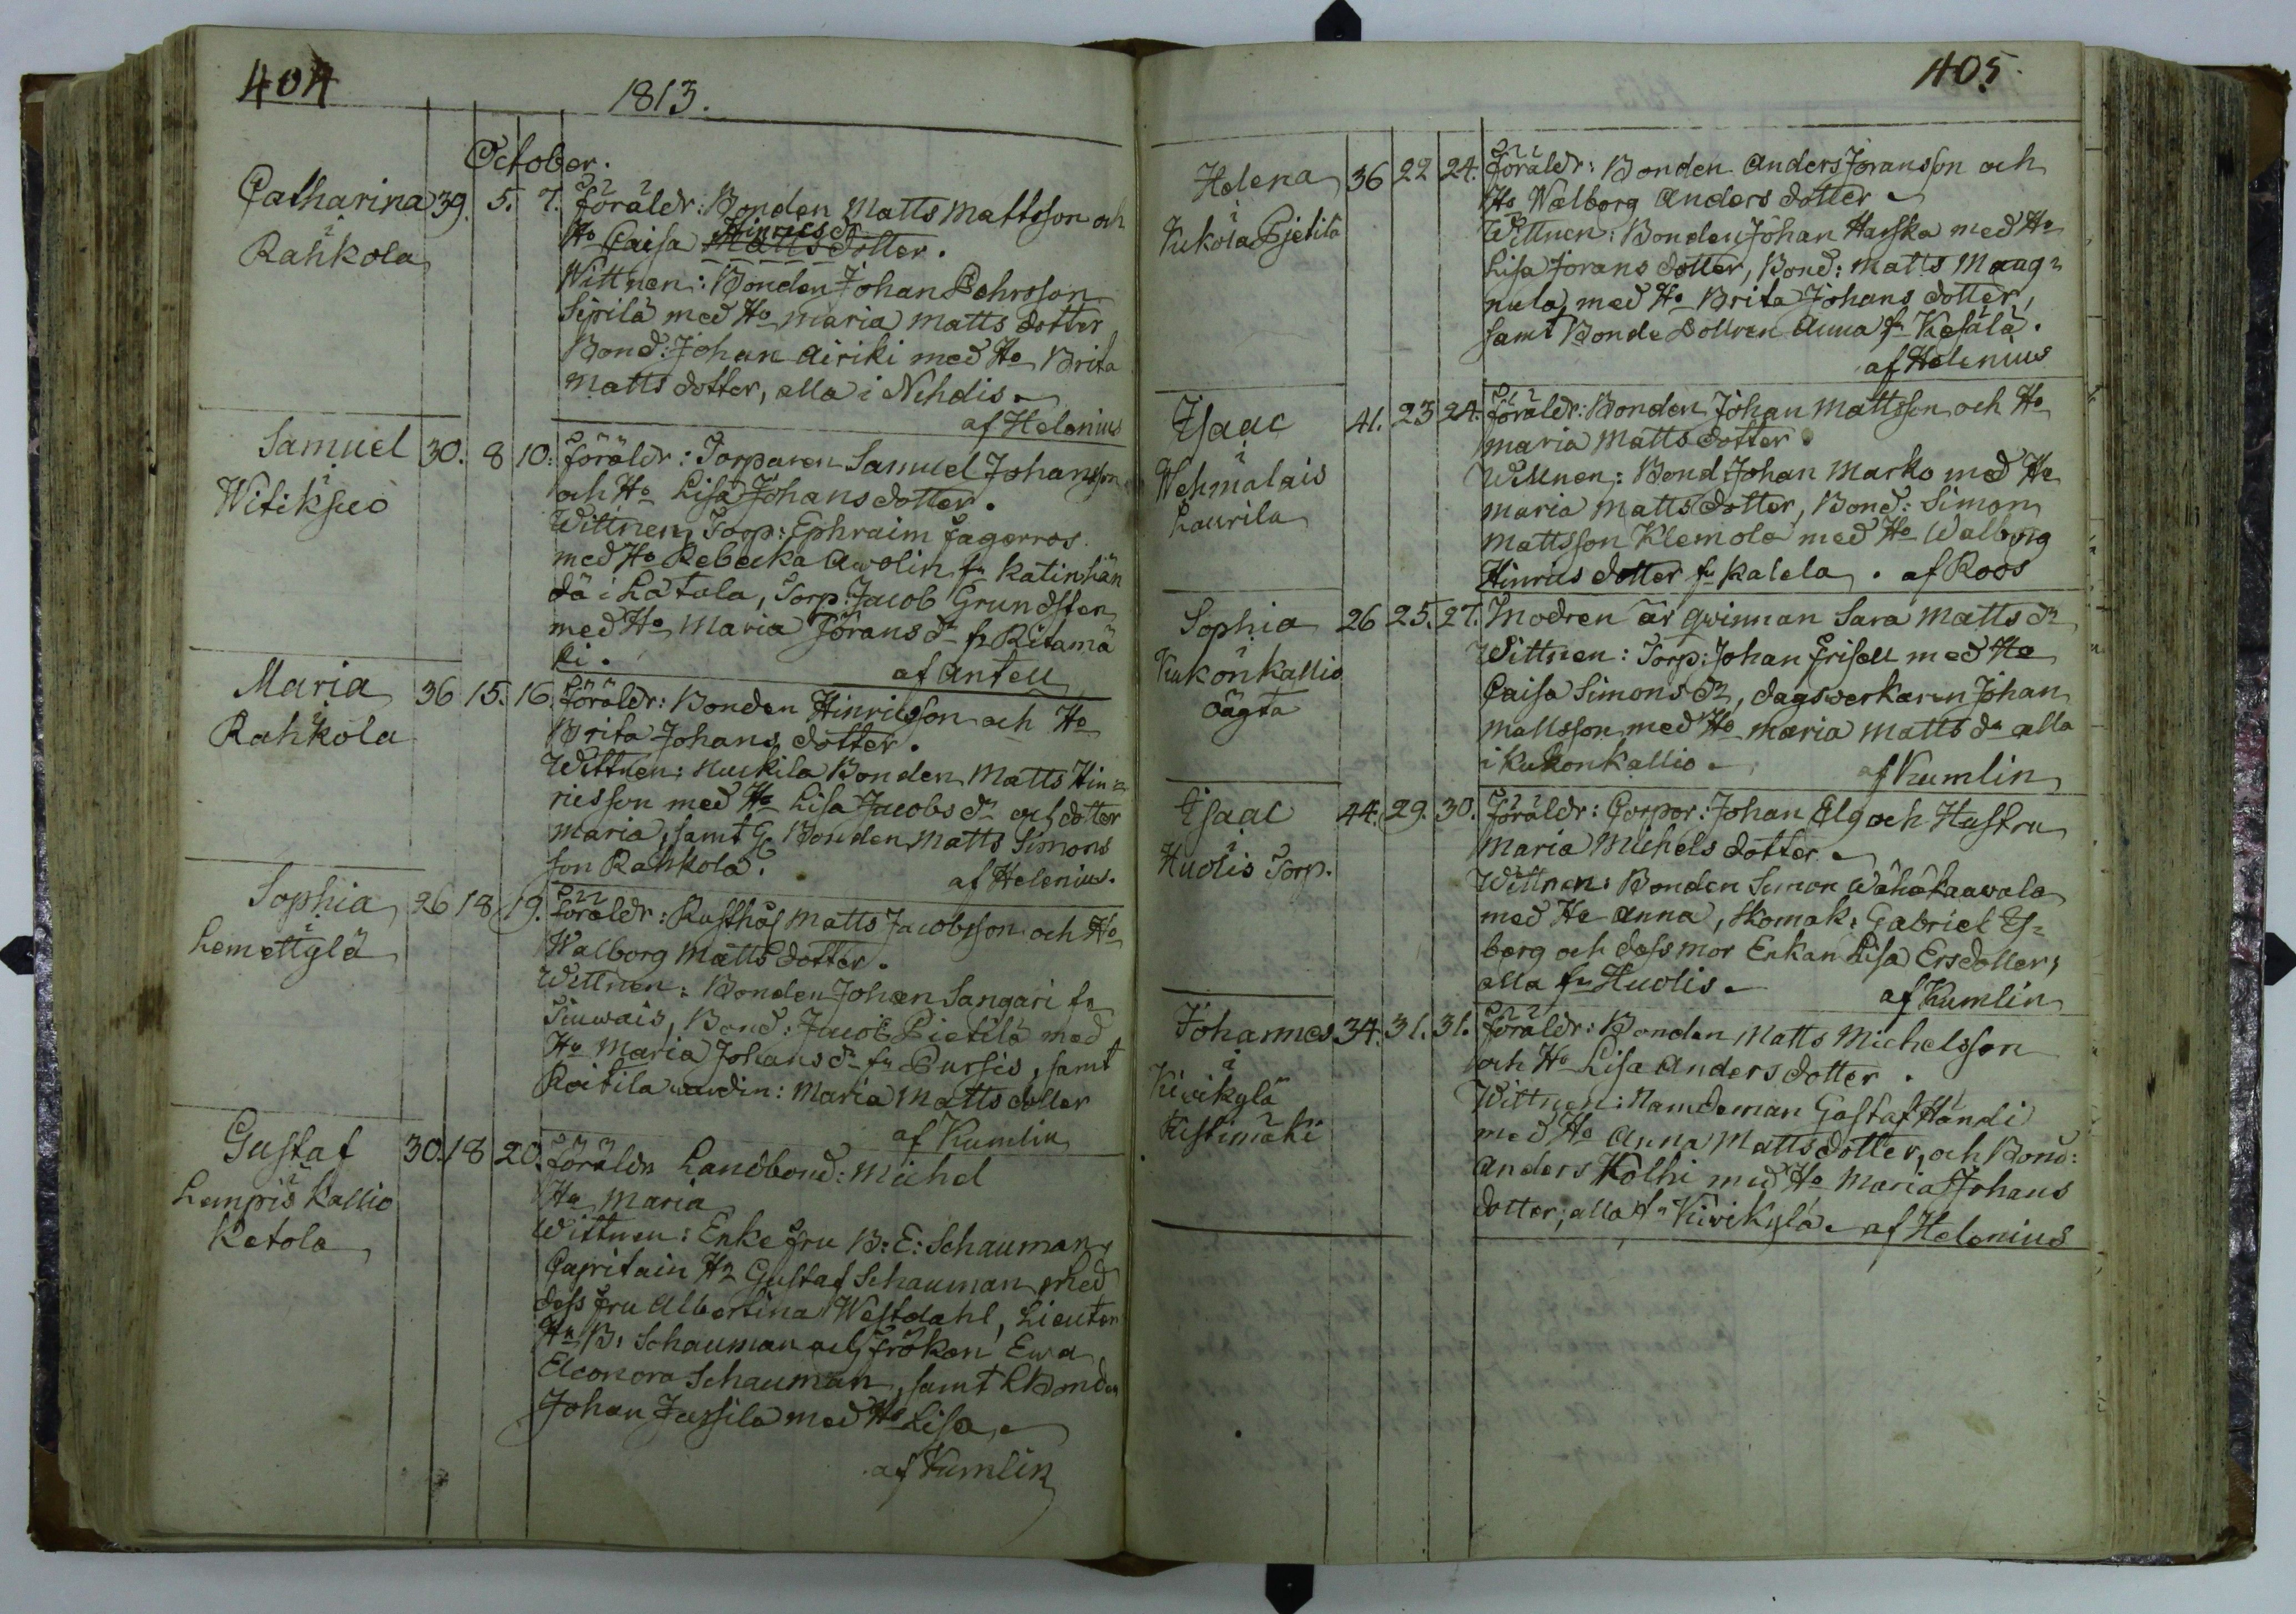 404
1813.
October.
Catharina 39. 5. 7. Föräldr: Bonden Matts Mattsson och
i
Rahkola
Ho Caisa Matts Hinrics dotter.
Wittnen: Bonden Johan Pehrsson
Sipilä med Ho Maria Matts dotter
Bond: Johan Airiki med Ho Brita
Matts dotter, alla i Nihdis.
af Helenius
Samuel 30. 8 10. Föräldr: Torparen Samuel Johansson
i
Witiksuo
och Ho Lisa Johans dotter.
Wittnen, Torp: Ephraim Fagerros
med Ho Rebecka Awolin fn Katinhän
dä i Latula, Torp: Jacob Grundsten
med Ho Maria Jörans dr fr Ritamä
ki.
af Antell
Maria 36 15. 16. Föräldr: Bonden Hinricsson och Ho
i
Rahkola
Brita Johans dotter.
Wittnen: Huckila Bonden Matts Hin=
ricsson med Ho Lisa Jacobs dr och dotter
Maria, samt Bonden Matts Simons
son Rahkola.
af Helenius.
Sophia 26 18 19. Föräldr: Rusthål Matts Jacobsson och Ho
i
Lemettylä
Walborg Matts dotter.
Wittnen: Bonden Johan Sangari fn
Tiuwais, Bond: Jacob Pietilä med
Ho Maria Johans dr fn Pursis, samt
Roitila Maria Matts dotter
af Kumlin
Gustaf 30. 18 20. Föräldr Landbond: Michel
i
Lempis Kallio
Ketola
Ho Maria
Wittnen: Enkefru B: E: Schauman,
Capitain Hr Gustaf Schauman med
dess fru Albertina Westdahl, Lieuten
Hr B: Schauman och Fröken Ewa
Eleonora Schauman, samt LBonden
Johan Jussila med Ho Lisa.
af Kumlin
405.
Helena 36 22 24. Föräldr: Bonden Anders Jöransson och
i
Kukola Pjetilä
Ho Walborg Anders dotter
Wittnen: Bonden Johan Hanska med Ho
Lisa Jörans dotter, Bond: Matts Maug=
nula, med Ho Brita Johans dotter,
samt Bonde Dottren Anna fr Kesälä.
af Helenius
Isaac 41. 23 24. Föräldr: Bonden Johan Mattsson och Ho
i
Wehmalais
Laurila
Maria Matts dotter.
Wittnen: Bond Johan Marko med Ho
Maria Matts dotter, Bond: Simon
Mattsson Klemola med Ho Walborg
Hinrics dotter fr Kalela. af Roos
Sophia 26 25. 27. Modren är qwinnan Sara Matts dr
i
Kukonkallio
oägta
Wittnen: Torp: Johan Frisell med Ho
Caisa Simons dr, dagswerkaren Johan
Mattsson med Ho Maria Matts dr alla
i Kukonkallio.
af Kumlin
Isaac 44. 29. 30. Föräldr: Corpor: Johan Elg och Hustru
i
Huolis Torp.
Maria Michels dotter.
Wittnen: Bonden Simon Wähäkaawala
med Ho Anna, Skomak: Gabriel
berg och dess mor Enkan Lisa Ersdotter,
alla fr Huolis.
af Kumlin
Johannes 34. 31. 31. Föräldr: Bonden Matts Michelsson
i
Kiwikylä
Kestimäki
och Ho Lisa Anders dotter.
Wittnen: Nämdeman Gustaf Händi
med Ho Anna Matts dotter, och Bond:
Anders Kolhi med Ho Maria Johans
dotter, alla fr Kiwikylä. af Helenius